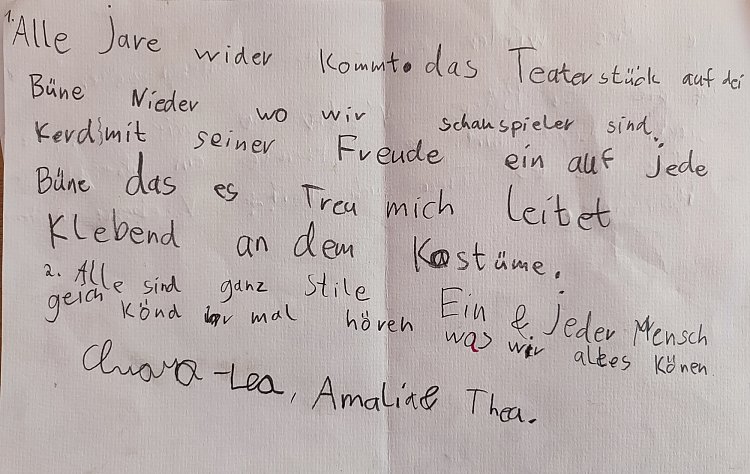 1. Alle Jare wider kommt das Teaterstück auf dei
Büne Nieder wo wir schauspieler sind.
Kerd mit seiner Freude ein auf jede
Büne das es Treu mich leitet
Klebend an dem Kostüme.
2. Alle sind ganz stile Ein & jeder Mensch
geich könd ir mal hören was wir alles könen
Chiara-Lea, Amalie Thea.